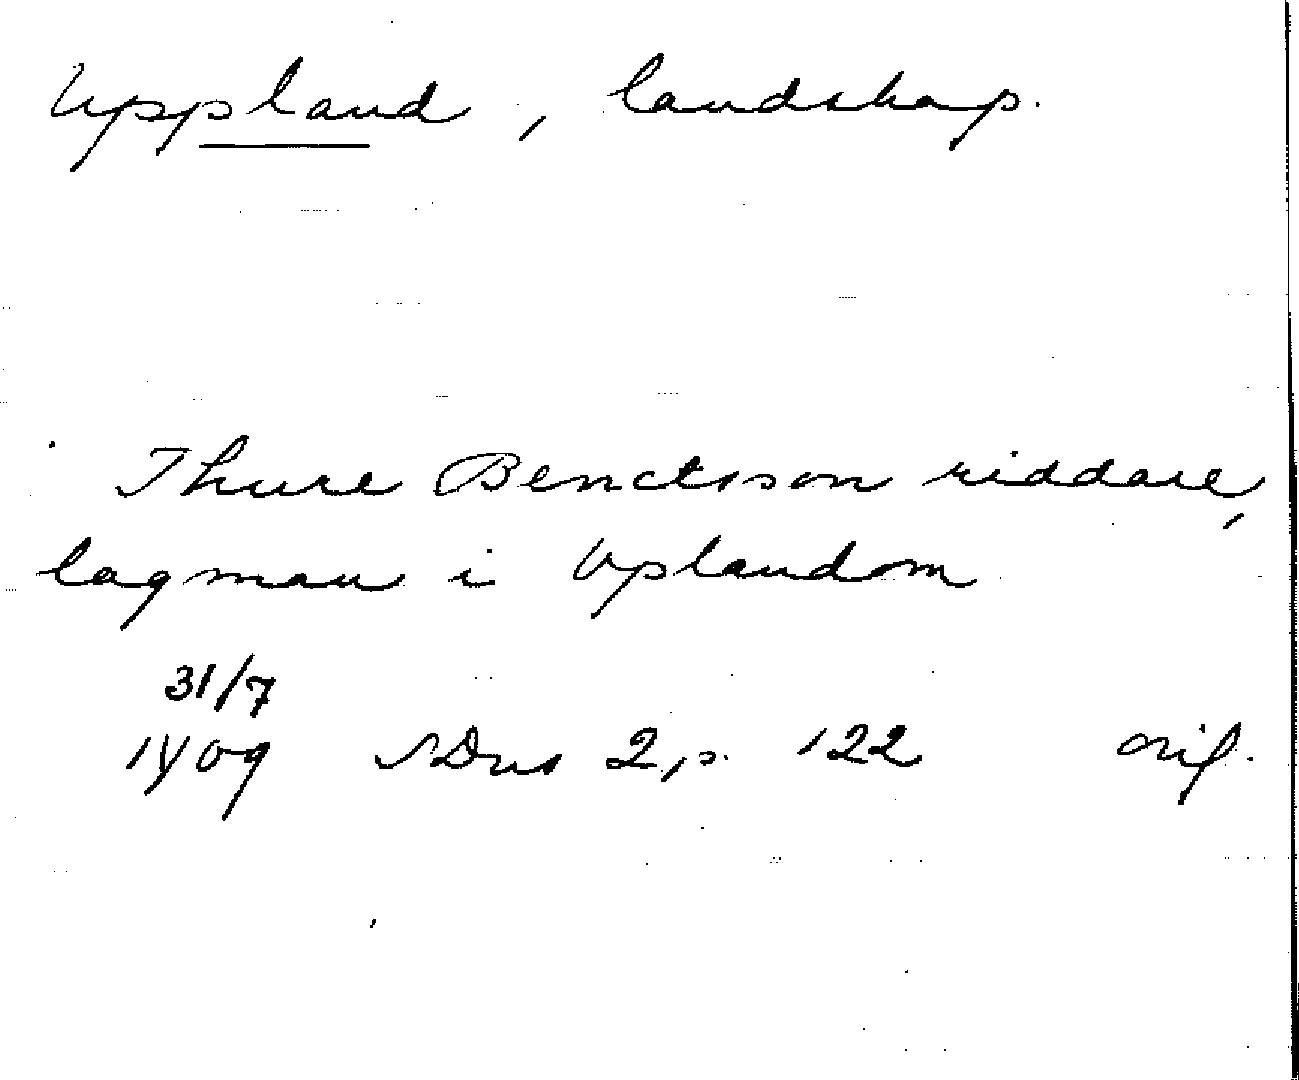 Uppland, landskap.
Thure Benctsson riddare,
lagman i Vplandom
31/7
1409 SDns 2, s. 122 orig.